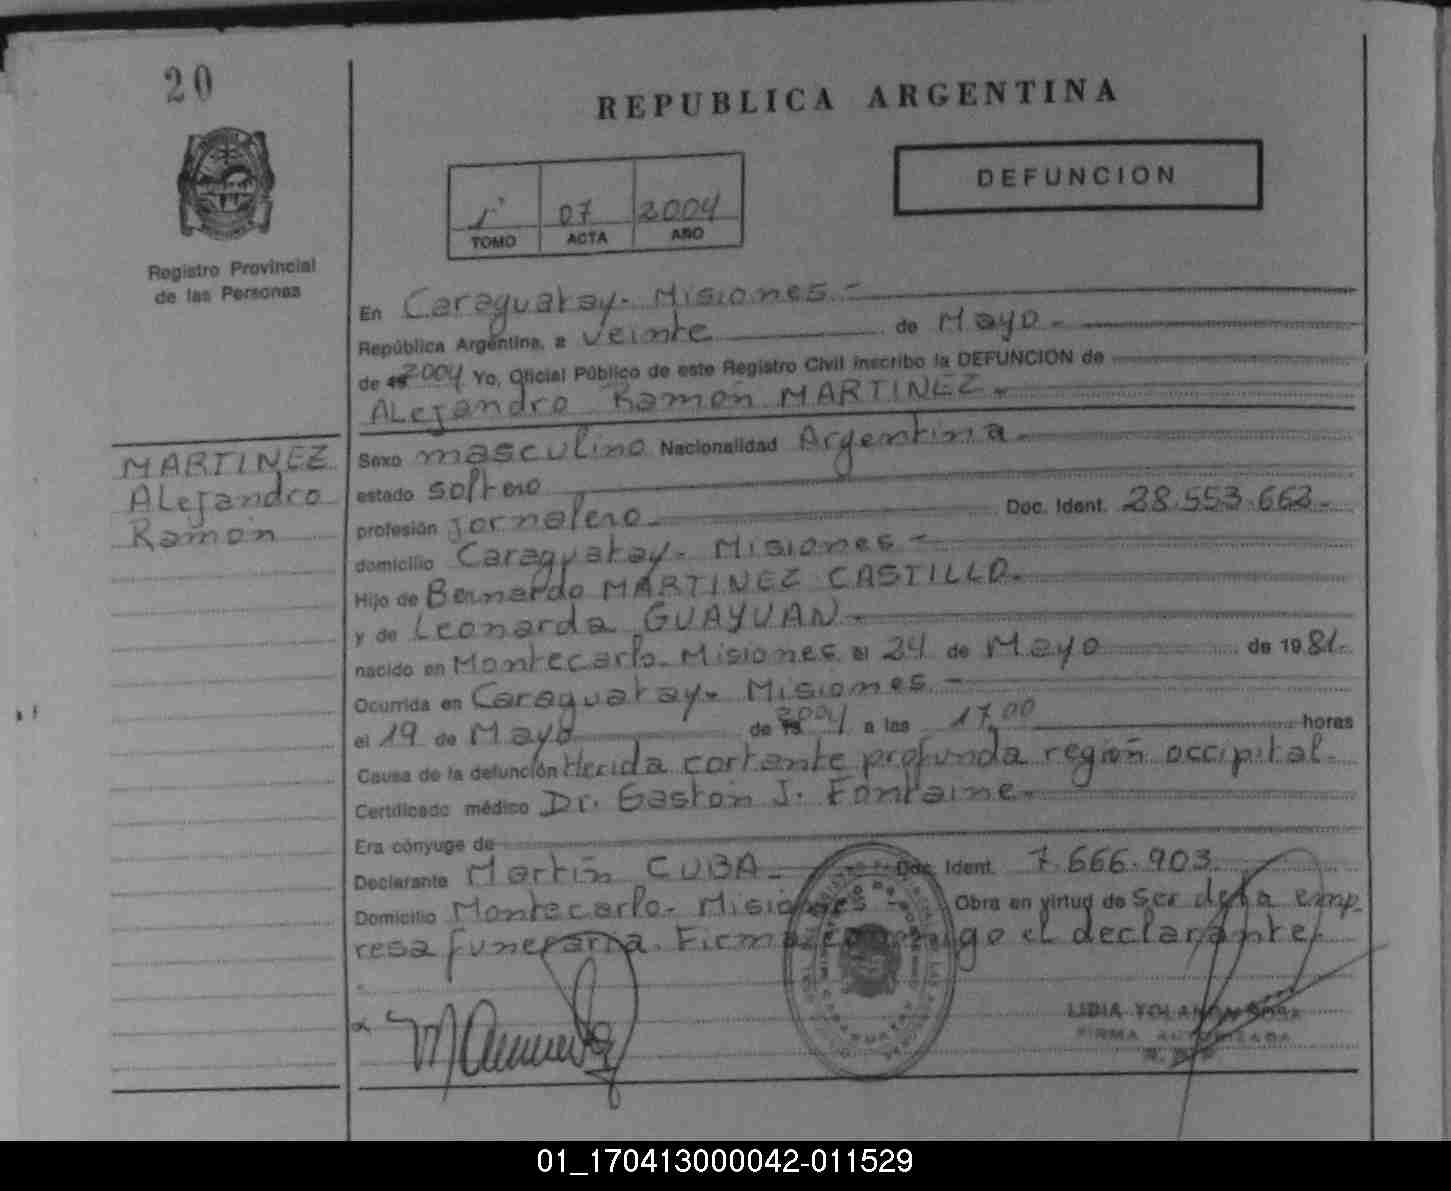 20
REPUBLICA ARGENTINA
DEFUNCION
1° 07 2004
TOMO ACTA AÑO
Registro Provincial
de las Personas
En Caraguatay - Misiones -
República Argentina, a veinte de Mayo -
de 2004 Yo, Oficial Público de este Registro Civil inscribo la DEFUNCION de
ALejandro Ramón MARTINEZ -
MARTINEZ
ALejandro
Ramón
Sexo masculino Nacionalidad Argentina -
estado soltero
profesión jornalero - Doc. Ident. 28.553.662 -
domicilio Caraguatay - Misiones -
Hijo de Bernardo MARTINEZ CASTILLO -
y de Leonarda GUAYUAN -
nacido en Montecarlo - Misiones el 24 de Mayo de 1981 -
Ocurrida en Caraguatay - Misiones -
el 19 de Mayo de 2004 a las 17,00 horas
Causa de la defunción Herida cortante profunda región occipital -
Certificado médico Dr. Gastón J. Fontaine -
Era cónyuge de
Declarante Martín CUBA - Doc. Ident. 7.666.903
Domicilio Montecarlo - Misiones - Obra en virtud de ser de la emp
resa funeraria. Firma conmigo el declarante.
LIDIA YOLANDA
FIRMA AUTORIZADA
01_170413000042-011529